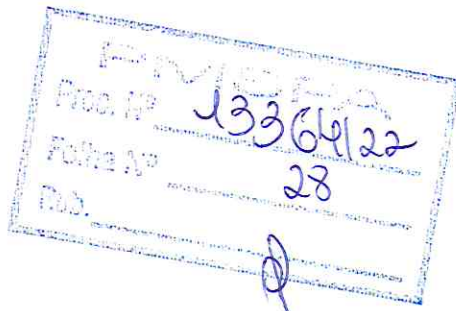 Proc. Nº 13364/22
Folha Nº 28
Rub.